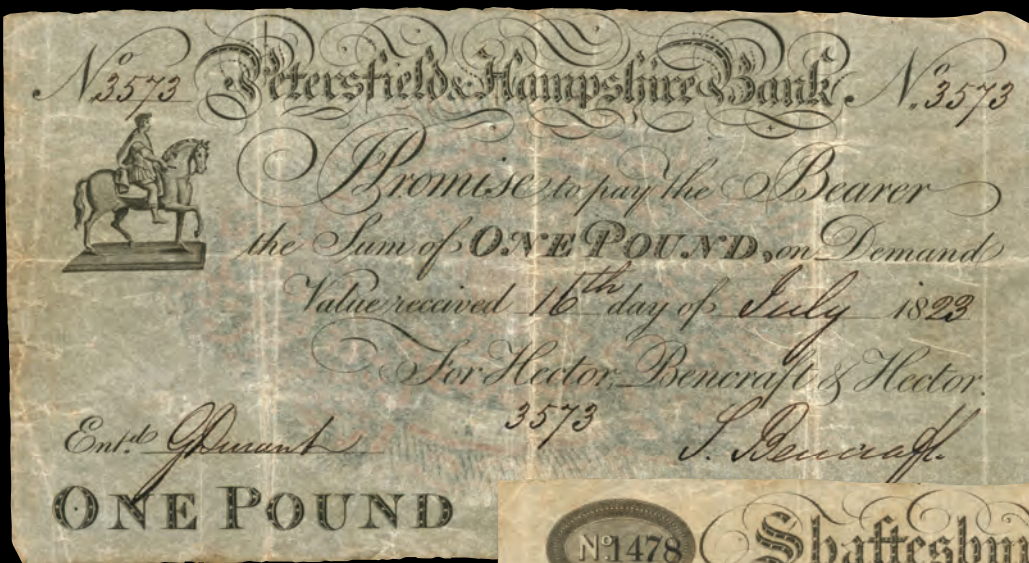 No 3573 Petersfield & Hampshire Bank. No. 3573
I Promise to pay the Bearer
the Sum of ONE POUND, on Demand
Value received 16th day of July 1823
For Hector, Bencraft & Hector.
3573
Entd. GDurant S. Bencraft.
ONE POUND
No 1478